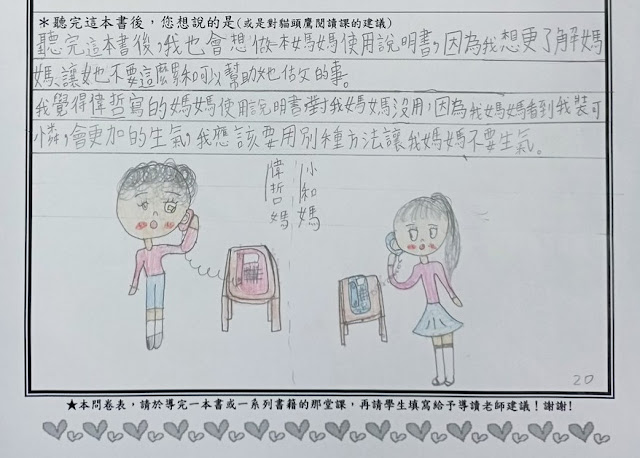 ＊聽完這本書後，您想說的是(或是對貓頭鷹閱讀課的建議)
聽完這本書後，我也會想做一本媽媽使用說明書，因為我想更了解媽
媽，讓她不要這麼累和可以幫助她做的事。
我覺得偉哲寫的媽媽使用說明書對我媽媽沒用，因為我媽媽看到我裝可
憐，會更加的生氣，我應該要用別種方法讓我媽媽不要生氣。
偉哲媽
小和媽
20
★本問卷表，請於導完一本書或一系列書籍的那堂課，再請學生填寫給予導讀老師建議！謝謝!